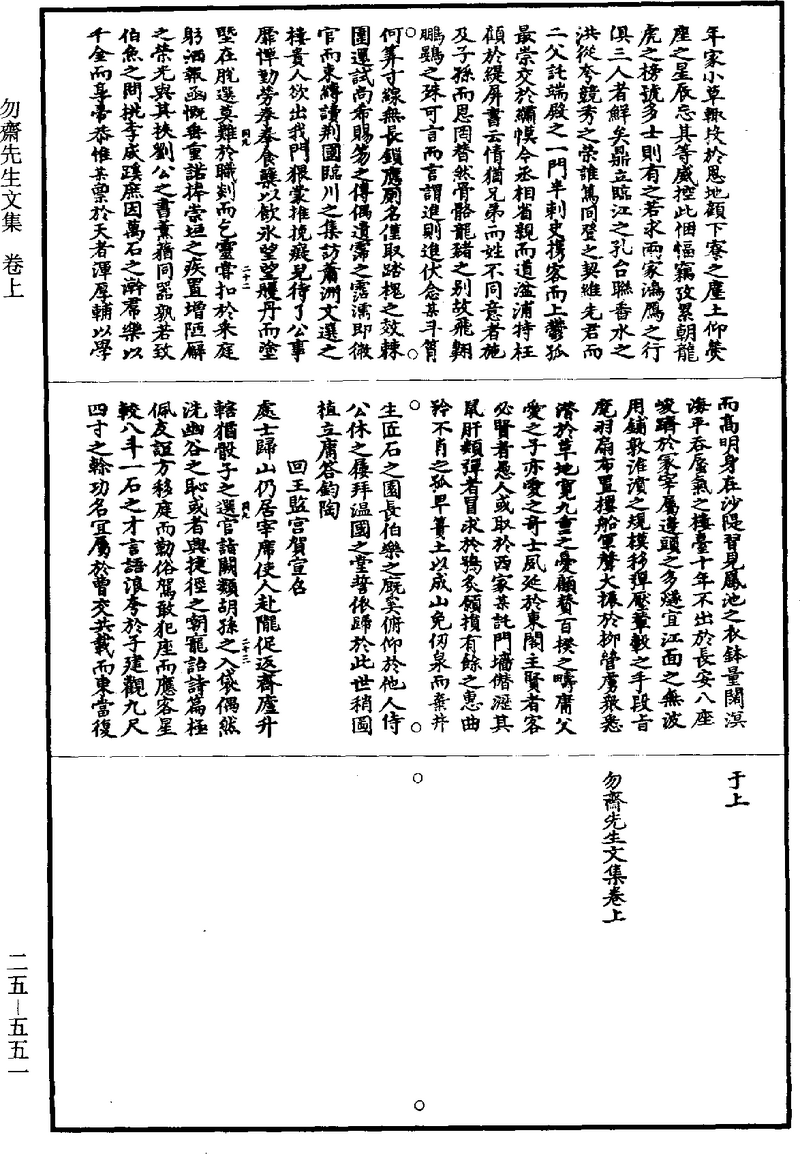 年家小草輒投於恩地顧下寮之塵土仰熒
座之星辰忘其等威控此悃愊竊攷累朝龍
虎之榜號多士則有之若求兩家鴻鴈之行
俱三人者鮮矣鼎立臨江之孔台聯香水之
洪從夸競秀之榮誰篤同登之契維先君而
二父託端殿之一門半刺史攜客而上鬱孤
最崇交於繡幙令丞相省觀而道湓浦特枉
顧於緹屏書云情猶兄弟而姓不同意者施
及子孫而思罔替然骨骼龍豬之別故飛翺
鵬鷃之殊可言而言謂進則進伏念某斗筲
何筭寸線無長鎖應厠名僅取踏槐之效棘
圍運試尚希賜笏之傳偶遺霈之露濡即微
官而束縳讀荆國臨川之集訪蕭洲文選之
樓貴人欲出我門猥蒙推挽癡兒待了公事
靡憚勤勞奉奉食蘗以飲氷望望雘丹而塗
墍在脫選莫難於職剡而乞靈嘗扣於釆庭
躬洒報函慨垂重諾偉崇垣之疾置增陋廨
之榮光與其挾劉公之書薰蕕同器孰若致
伯魚之問桃李成蹊庶因萬石之澣羣樂以
千金而享帚恭惟某禀於天者渾厚輔以學
而高明身在沙隄習見鳳池之衣鉢量闊溟
海平吞蜃氣之樓臺十年不出於長安八座
峻躋於冢宰屬邊頭之多燧宜江面之無波
用鋪敦淮濆之規模移彈壓輦轂之手段旨
麾羽扇布置樓船軍聲大振於柳營虜衆悉
潛於草地寬九重之憂顧贊百揆之疇庸父
愛之子亦愛之奇士夙延於東閤主賢者客
必賢者愚人或取於西家某託門墻僭瀝其
鼠肝類彈者冒求於鴞炙願損有餘之惠曲
矜不肖之孤早簣土以成山免仞泉而棄井
生匠石之園長伯樂之廐奚俯仰於他人侍
公休之屨拜温國之堂誓依歸於此世稍圖
植立庸荅鈞陶
回王監宫賀宣名
處士歸山仍居宰席使人赴隴促返齋廬升
轄猶骰子之選官詣闕類胡孫之入袋偶然
洗幽谷之恥或者與捷徑之嘲寵詒詩篇極
佩友誼方移庭而勒俗駕敢犯座而應客星
較八斗一石之才言語浪夸於子建觀九尺
四寸之榦功名宜屬於曹交共載而東當復
于上
勿齋先生文集卷上
勿齋先生文集 卷上
二五—五五一